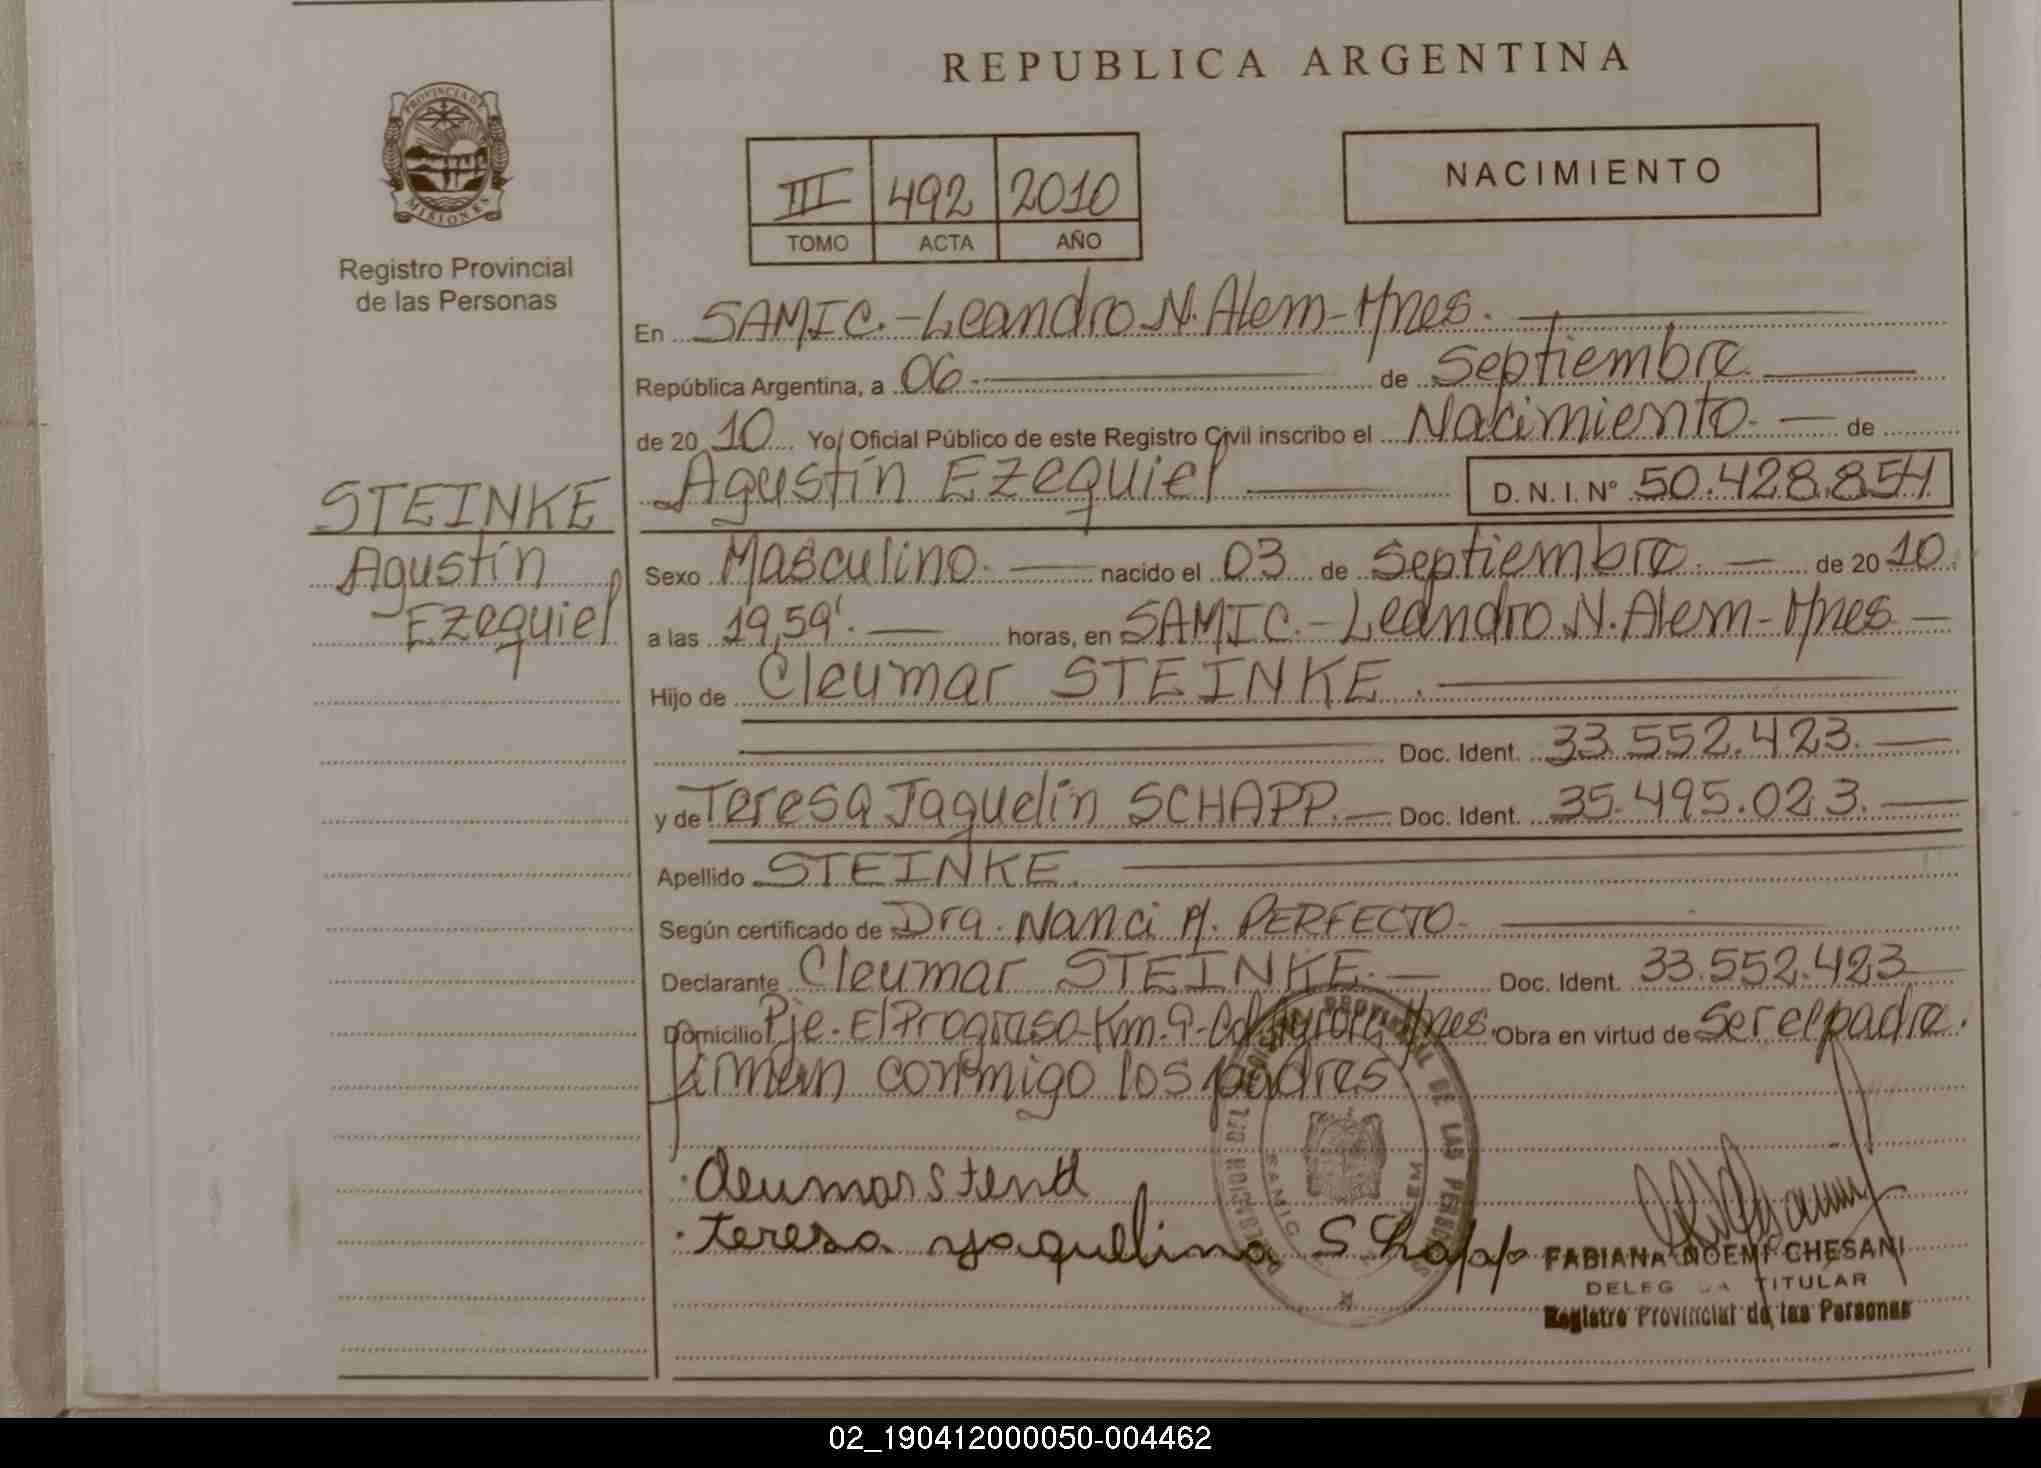 REPUBLICA ARGENTINA
PROVINCIA DE
MISIONES
Registro Provincial
de las Personas
III 492 2010
TOMO ACTA AÑO
NACIMIENTO
En SAMIC.-Leandro N. Alem-Mnes.
República Argentina, a 06 de Septiembre
de 20 10 Yo, Oficial Público de este Registro Civil inscribo el Nacimiento. de
Agustín Ezequiel D. N. I. Nº 50.428.854
STEINKE
Agustín
Ezequiel
Sexo Masculino. nacido el 03 de Septiembre. de 20 10.
a las 19,59'. horas, en SAMIC.-Leandro N. Alem-Mnes
Hijo de Cleumar STEINKE.
Doc. Ident. 33.552.423.
y de Teresa Jaquelín SCHAPP. Doc. Ident. 35.495.023.
Apellido STEINKE.
Según certificado de Dra. Nanci A. PERFECTO
Declarante Cleumar STEINKE. Doc. Ident. 33.552.423
Domicilio Pje. El Progreso-Km.9-Col. Aurora, Mnes. Obra en virtud de Ser el padre.
firman conmigo los padres
REGISTRO PROVINCIAL DE LAS PERSONAS
SAMIC
ALEM
teresa yaquelina SChapp
FABIANA NOEMI CHESANI
TITULAR
Registro Provincial de las Personas
02_190412000050-004462